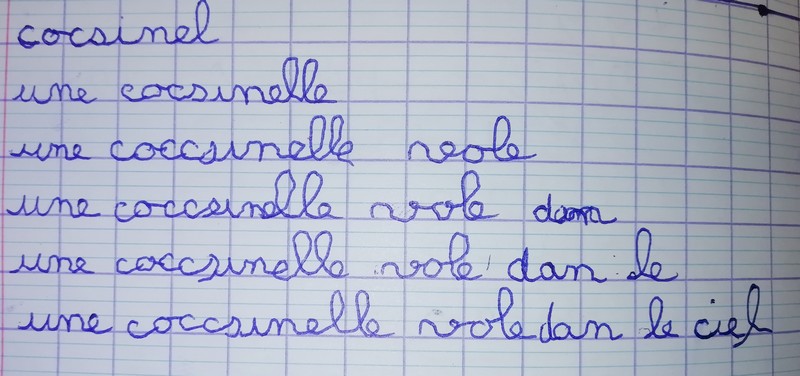 cocsinel
une cocsinelle
une coccsinelle vole
une coccsinelle vole dan
une coccsinelle vole dan le
une coccsinelle vole dan le ciel